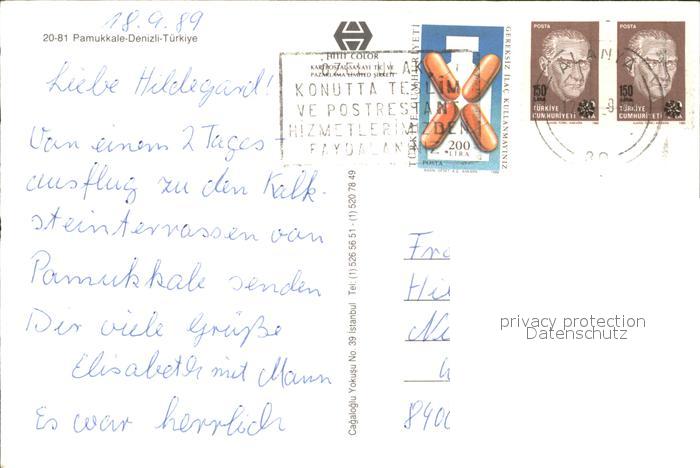 18.9.89
20-81 Pamukkale-Denizli-Türkiye
HITIT COLOR
KARTPOSTAL SANAYİ TİC. VE
PAZARLAMA LIMITED ŞİRKETİ
Liebe Hildegard!
Von einem 2 Tages-
ausflug zu den Kalk-
steinterrassen von
Pamukkale senden
Dir viele Grüße
Elisabeth mit Mann
Es war herrlich
KONUTTA TESLİM
VE POSTRESTANT
HİZMETLERİMİZDEN
FAYDALAN
TÜRKİYE CUMHURİYETİ
GEREKSİZ İLAÇ KULLANMAYINIZ
200
LİRA
POSTA
POSTA
150
LİRA
TÜRKİYE
CUMHURİYETİ
POSTA
150
LİRA
TÜRKİYE
CUMHURİYETİ
Cağaloğlu Yokuşu No. 39 İstanbul Tel: (1) 526 56 51 - (1) 520 78 49
Fr
Hi
840
privacy protection
Datenschutz